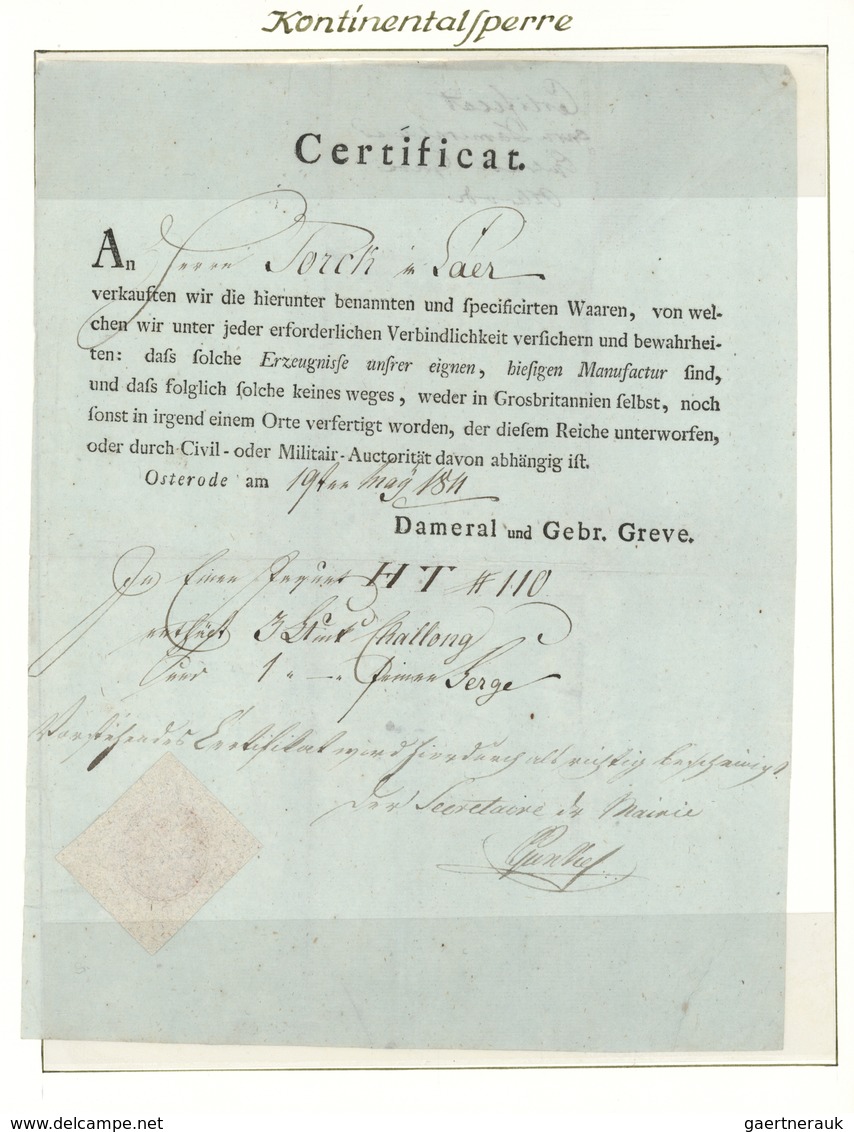 Kontinentalſperre
Certificat.
An Herrn Torck in Laer
verkauften wir die hierunter benannten und ſpecificirten Waaren, von wel-
chen wir unter jeder erforderlichen Verbindlichkeit verſichern und bewahrhei-
ten: daſs ſolche Erzeugniſſe unſrer eignen, hieſigen Manufactur ſind,
und daſs folglich ſolche keines weges, weder in Grosbritannien ſelbst, noch
ſonst in irgend einem Orte verfertigt worden, der dieſem Reiche unterworfen,
oder durch Civil- oder Militair-Auctorität davon abhängig iſt.
Osterode am 19ten May 1811
Dameral und Gebr. Greve.
In Einen HT # 110
enthält 3 Stück Challong
und 1 " — " feinen Serge
Vorstehendes Certifikat wird hierdurch als richtig bescheinigt
Der Secretaire der Mairie
delcampe.net
gaertnerauk